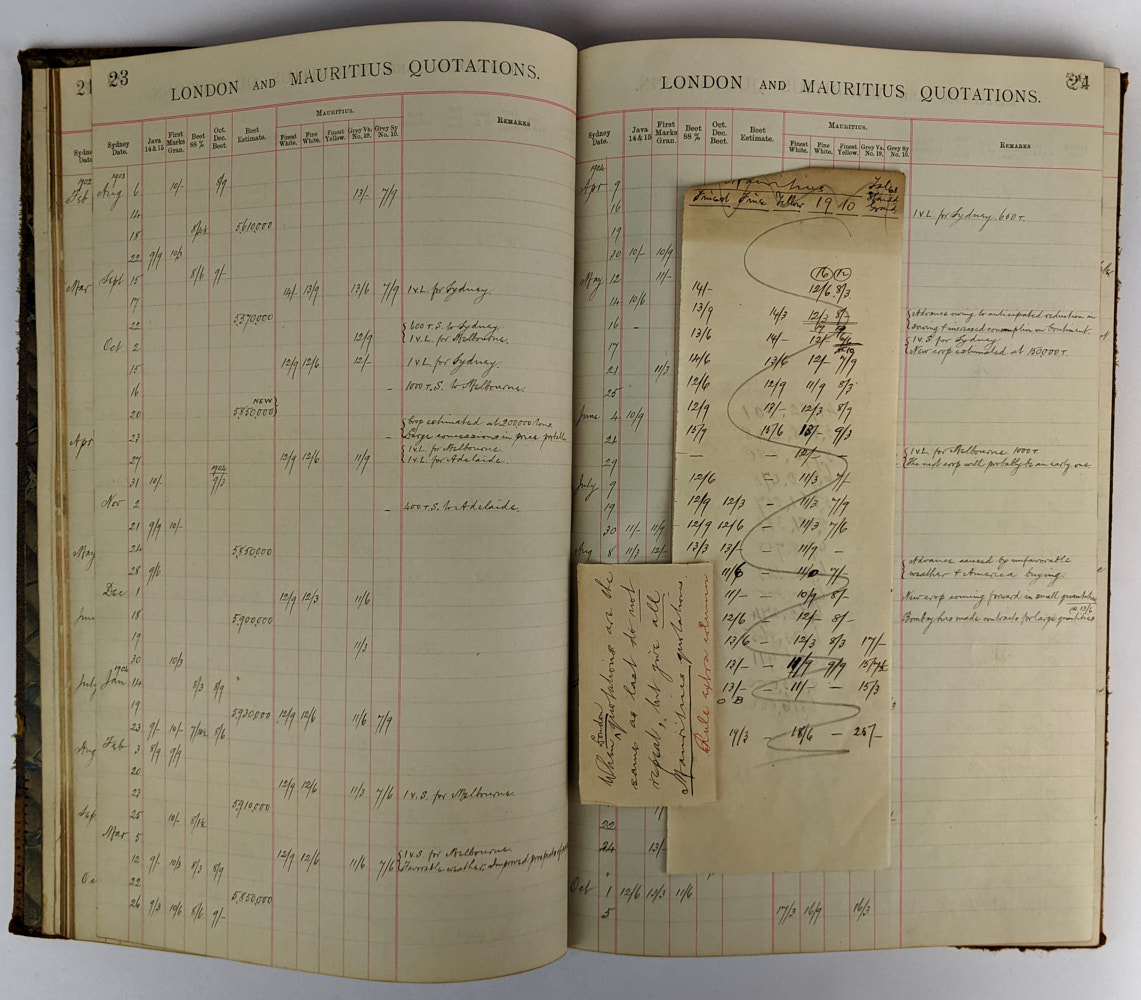 21
Sydney Date
1902
Feb
Mar
Apr
May
June
July
Aug
Sep
23
LONDON AND MAURITIUS QUOTATIONS.
Sydney Date. Java 14 & 15 First Marks Gran. Beet 88 % Oct. Dec. Beet Beet Estimate. MAURITIUS. REMARKS
Finest White. Fine White. Finest Yellow. Grey Vs. No. 19. Grey Sy No. 10.
1903
Aug 6 10/- 8/9 13/- 7/9
14
18 5,610,000
22 9/9 10/3
Sept 15 8/6 9/- 14/- 13/9 13/6 7/9 1 v.L. for Sydney.
17
22 5,370,000 600 T.S. to Sydney
Oct 2 12/9 1 v.L. for Melbourne.
15 12/9 12/6 12/- 1 v.L. for Sydney
16 – 1000 T.S. to Melbourne.
NEW
20 5,850,000 Crop estimated at 200000 tons
23 – Large concessions in price
27 12/9 12/6 11/9 1 v.L. for Melbourne
1 v.L. for Adelaide.
1904
31 10/- 9/3
Nov 2 – 400 T.S. to Adelaide.
21 9/9 10/-
24 5,850,000
28 9/6
Dec 1 12/9 12/3 11/6
18 5,900,000
19 11/3
30 10/3
1904
Jan 14 8/3 8/9 "
19 5,930,000 12/9 12/6 11/6 7/9
23 9/- 10/- 7/10½ 8/6
Feb 3 8/9 9/9
20
23 12/9 12/6 11/3 7/6 1 v.S. for Melbourne
25 10/- 8/1½ 5,910,000
Mar 5
12 9/- 10/3 8/3 8/9 12/9 12/6 11/6 7/6 1 v.S. for Melbourne.
Favorable weather. Improved prospects
22
26 9/3 10/6 8/6 9/- 5,850,000
24
LONDON AND MAURITIUS QUOTATIONS.
Sydney Date. Java 14 & 15 First Marks Gran. Beet 88 % Oct. Dec. Beet. Beet Estimate. MAURITIUS. REMARKS
Finest White. Fine White. Finest Yellow. Grey Vs. No. 19. Grey Sy No. 10.
1904
Apr 9
16 1 v.L. for Sydney 600 T.
19
30 10/- 10/9
May 12 11/-
14 10/6
16 Advance owing to anticipated reduction in
sowing & increased consumption on Continent
17 1 v.S. for Sydney
New crop estimated at 150,000 T.
21 11/3
25
June 4 10/9
21
29 1 v.L. for Melbourne 1000 T.
The next crop will probably be an early one
July 9
19
30 11/- 11/9
Aug 8 11/3 12/-
Advance caused by unfavorable
weather & America buying.
New crop coming forward in small quantities
@ 13/6
Bombay has made contracts for large quantities
22
24 13/-
"
Oct 1 12/6 13/3 11/6
5 17/3 16/9 16/3
Mauritius
Finest Fine Yellow 19 10
16 12
14/- 12/6 8/3
13/9 14/3 12/3 8/-
13/6 14/- 12/-
14/6 13/6 12/- 7/9
12/6 12/9 11/9 8/3
12/9 13/- 12/3 8/9
15/9 15/6 13/- 9/3
– – 12/- –
12/6 – 11/3 7/-
12/9 12/3 – 11/3 7/9
12/9 12/6 – 11/3 7/6
13/3 13/- – 11/9 –
11/6 – 7/-
11/- – 10/9 8/-
12/6 – 12/- 8/-
13/6 – 12/3 8/3 17/-
13/- – 9/9 15/7½
13/- – 11/- – 15/3
O.B
19/3 – 18/6 –
When London quotations are the
same as last do not
repeat, but give all
Mauritius quotations
Rule extra column